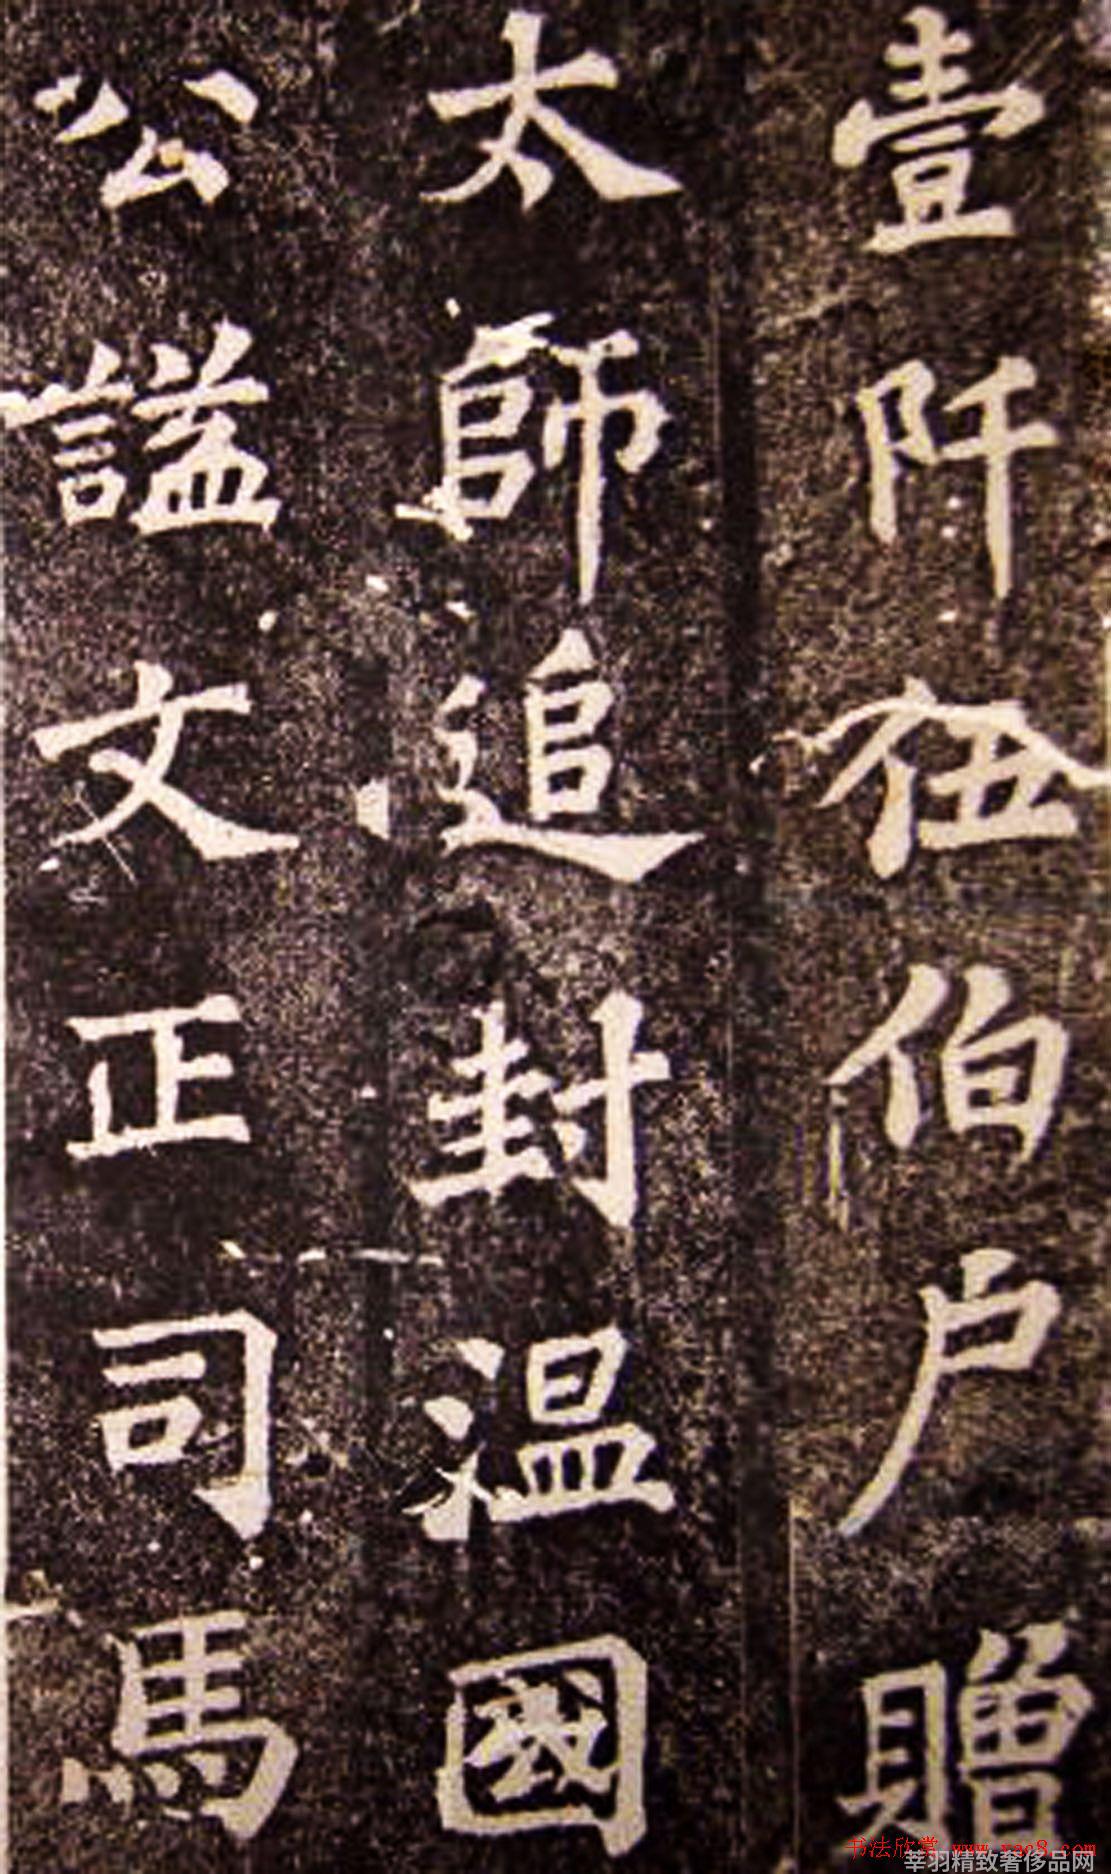 壹阡伍伯户贈
太師追封溫國
公謚文正司馬
书法欣赏 www.yac8.com
莘羽精致奢侈品网